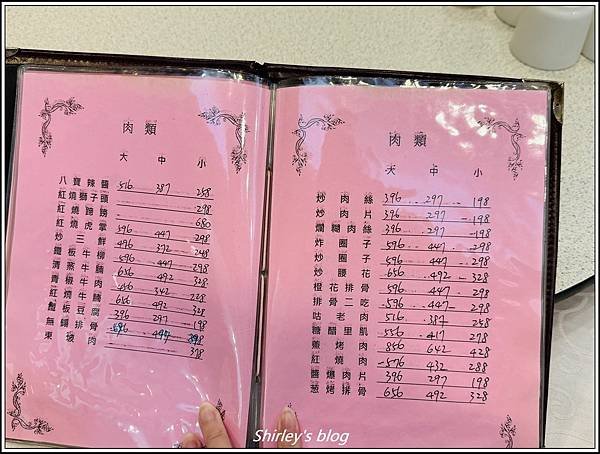 肉類
大 中 小
八寶辣醬 516 387 258
紅燒獅子頭 298
紅燒蹄膀 680
紅燒虎掌 596 447 298
炒三鮮 496 372 248
鐵板牛柳 596 447 298
清蒸牛腩 656 492 328
青椒牛肉 456 342 228
紅燒牛腩 656 492 328
板豆腐 396 297 198
無錫排骨 596 447 298
東坡肉 378
肉類
大 中 小
炒肉絲 396 297 198
炒肉片 396 297 198
爛糊肉絲 396 297 198
炸圈子 596 447 298
炒圈子 596 447 298
炒腰花 656 492 328
橙花排骨 596 447 298
排骨二吃 596 447 298
咕老肉 516 387 258
糖醋里肌 556 417 278
烤肉 856 642 428
紅燒肉 576 432 288
醬爆肉片 396 297 198
葱烤排骨 656 492 328
Shirley's blog